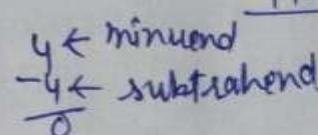 4 ← minuend
-4 ← subtrahend
0